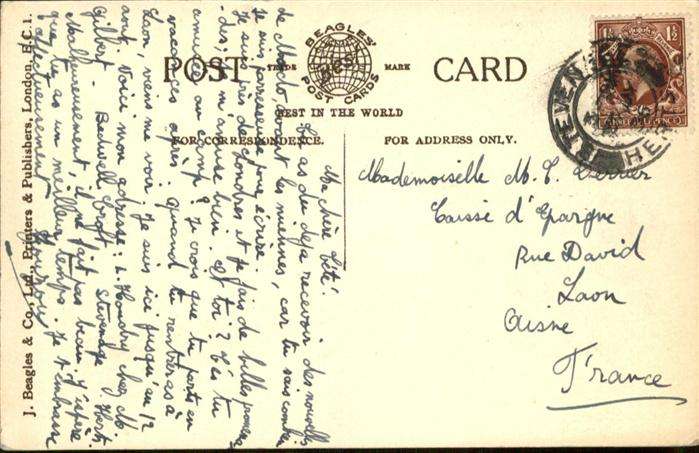 POST CARD
BEAGLES'
POST CARDS
TRADE MARK
BEST IN THE WORLD
FOR CORRESPONDENCE.
FOR ADDRESS ONLY.
J. Beagles & Co., Ltd., Printers & Publishers, London, E.C.1.
STEVEN
HE
1½
1½
Mademoiselle M. T.
Caisse d'Epargne
Rue David
Laon
Aisne
France
Ma chère
as du deja recevoir des nouvelles
de avant les miennes, car tu sais combien
je suis paresseuse pour écrire.
Je suis près de Londres et je fais de belles promena-
des, je m'amuse bien. et toi ? T'es tu
amusée au camp ? je crois que tu pars en
vacances après. Quand tu rentreras à
Laon, viens me voir. Je suis ici jusqu'au 12
aout. Voici mon adresse : L. chez M.
Gilbert - Bedwell Croft Stevenage Herts
Malheureusement, il ne fait pas beau. J'espère
que tu as un meilleur temps. Je t'embrasse
affectueusement